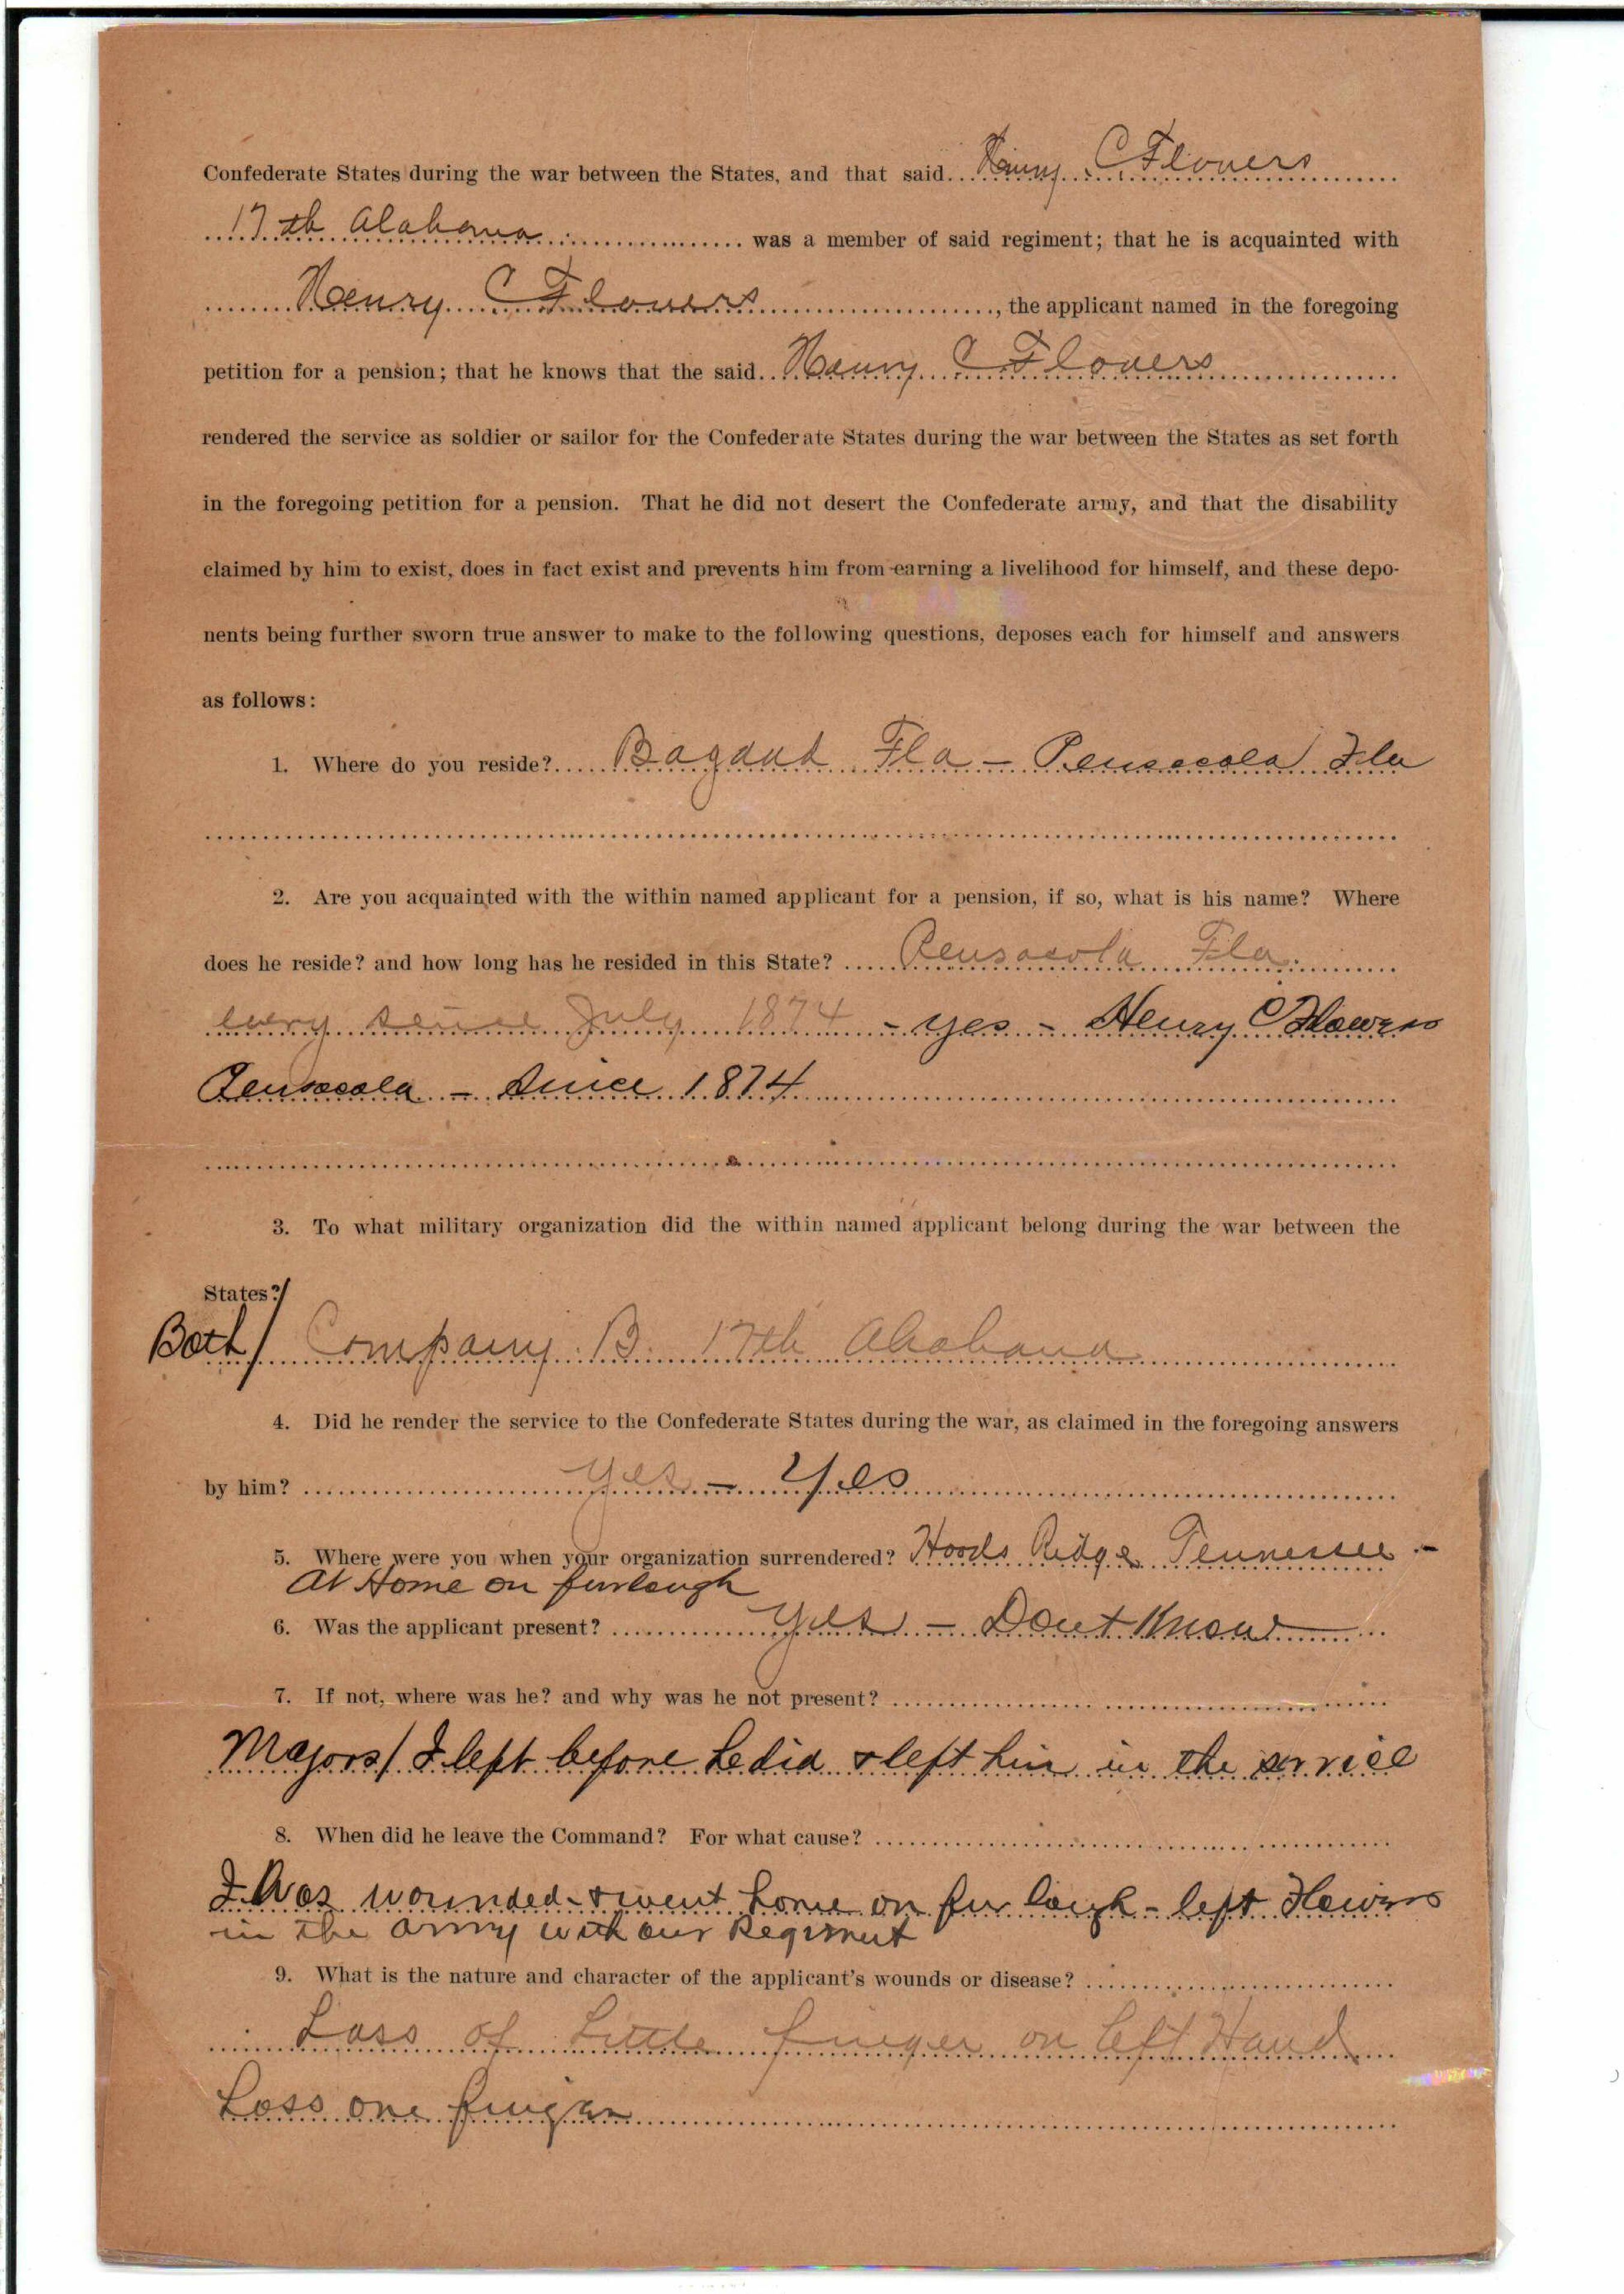 Confederate States during the war between the States, and that said Henry C Flowers
17th Alabama was a member of said regiment; that he is acquainted with
Henry C Flowers, the applicant named in the foregoing
petition for a pension; that he knows that the said Henry C Flowers
rendered the service as soldier or sailor for the Confederate States during the war between the States as set forth
in the foregoing petition for a pension. That he did not desert the Confederate army, and that the disability
claimed by him to exist, does in fact exist and prevents him from earning a livelihood for himself, and these depo-
nents being further sworn true answer to make to the following questions, deposes each for himself and answers
as follows:
1. Where do you reside? Bagdad Fla - Pensacola Fla
2. Are you acquainted with the within named applicant for a pension, if so, what is his name? Where
does he reside? and how long has he resided in this State? Pensacola Fla.
every since July 1874 - yes - Henry C Flowers
Pensacola - Since 1874
3. To what military organization did the within named applicant belong during the war between the
States?/
Both/ Company B. 17th Alabama
4. Did he render the service to the Confederate States during the war, as claimed in the foregoing answers
by him? Yes - Yes
5. Where were you when your organization surrendered? Hoods Ridge Tennessee -
At Home on furlough
6. Was the applicant present? Yes - Dont Know
7. If not, where was he? and why was he not present?
Majors/ I left before he did & left him in the service
8. When did he leave the Command? For what cause?
I Was wounded - & went home on furlough - left Flowers
in the army with our Regiment
9. What is the nature and character of the applicant's wounds or disease?
Loss of Little finger on left Hand
Loss one finger